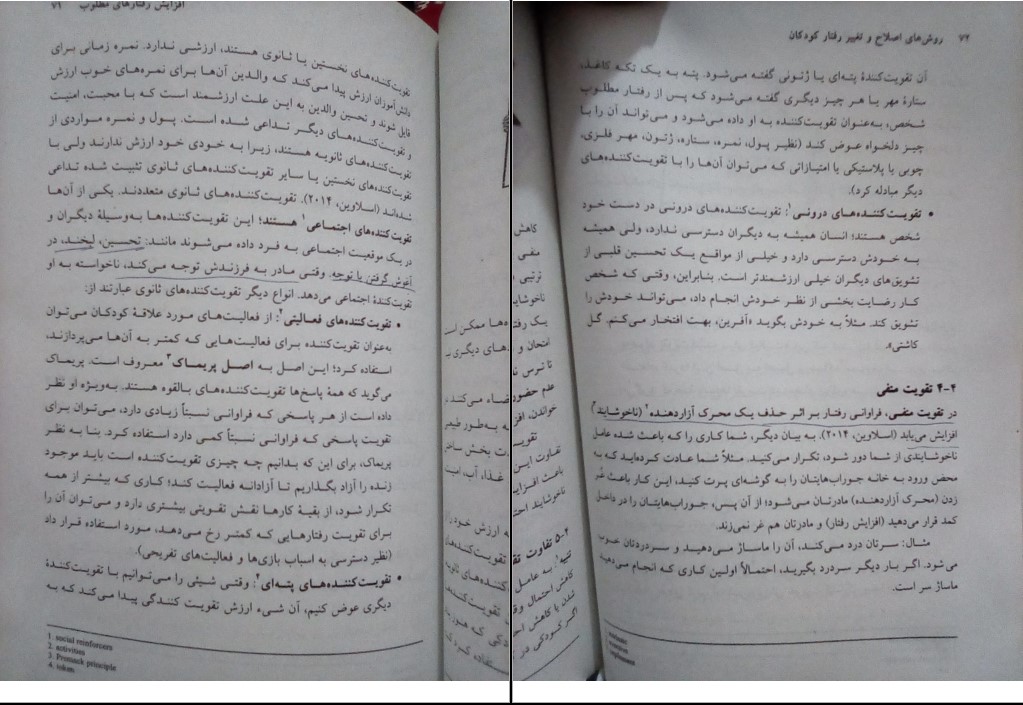 افزایش رفتارهای مطلوب ۷۱
تقویت‌کننده‌های نخستین یا ثانوی هستند، ارزشی ندارد. نمره زمانی برای
دانش‌آموزان ارزش پیدا می‌کند که والدین آن‌ها برای نمره‌های خوب ارزش
قایل شوند و تحسین والدین به این علت ارزشمند است که با محبت، امنیت
و تقویت‌کننده‌های دیگر تداعی شده است. پول و نمره مواردی از
تقویت‌کننده‌های ثانویه هستند، زیرا به خودی خود ارزش ندارند ولی با
تقویت‌کننده‌های نخستین یا سایر تقویت‌کننده‌های ثانوی تثبیت شده تداعی
شده‌اند (اسلاوین، ۲۰۱۴). تقویت‌کننده‌های ثانوی متعددند. یکی از آن‌ها
تقویت‌کننده‌های اجتماعی۱ هستند؛ این تقویت‌کننده‌ها به‌وسیلهٔ دیگران و
در یک موقعیت اجتماعی به فرد داده می‌شوند مانند: تحسین، لبخند، در
آغوش گرفتن یا توجه. وقتی مادر به فرزندش توجه می‌کند، ناخواسته به او
تقویت‌کنندهٔ اجتماعی می‌دهد. انواع دیگر تقویت‌کننده‌های ثانوی عبارتند از:
• تقویت‌کننده‌های فعالیتی۲: از فعالیت‌های مورد علاقهٔ کودکان می‌توان
به‌عنوان تقویت‌کننده برای فعالیت‌هایی که کمتر به آن‌ها می‌پردازند،
استفاده کرد؛ این اصل به اصل پریماک۳ معروف است. پریماک
می‌گوید که همهٔ پاسخ‌ها تقویت‌کننده‌های بالقوه هستند. به‌ویژه او نظر
داده است از هر پاسخی که فراوانی نسبتاً زیادی دارد، می‌توان برای
تقویت پاسخی که فراوانی نسبتاً کمی دارد استفاده کرد. بنا به نظر
پریماک، برای این که بدانیم چه چیزی تقویت‌کننده است باید موجود
زنده را آزاد بگذاریم تا آزادانه فعالیت کند؛ کاری که بیشتر از همه
تکرار شود، از بقیهٔ کارها نقش تقویتی بیشتری دارد و می‌توان آن را
برای تقویت رفتارهایی که کمتر رخ می‌دهد، مورد استفاده قرار داد
(نظیر دسترسی به اسباب بازی‌ها و فعالیت‌های تفریحی).
• تقویت‌کننده‌های پته‌ای۴: وقتی شیئی را می‌توانیم با تقویت‌کنندهٔ
دیگری عوض کنیم، آن شیء ارزش تقویت کنندگی پیدا می‌کند که به
1. social reinforcers
2. activities
3. Premack principle
4. token
ه‌ها ممکن است
دهای دیگری نی
ضاء می‌کند
ه به‌طور طبیعی
ت بخش ساختن
غذا، آب، است
ه ارزش خود را
تقویت‌کننده‌های
کننده‌های ثانویه
تقویت‌کننده
دکی که هنوز
ستفاده کرد
۷۲ روش‌های اصلاح و تغییر رفتار کودکان
آن تقویت‌کنندهٔ پته‌ای یا ژتونی گفته می‌شود. پته به یک تکه کاغذ،
ستاره مهر یا هر چیز دیگری گفته می‌شود که پس از رفتار مطلوب
شخص، به‌عنوان تقویت‌کننده به او داده می‌شود و می‌تواند آن را با
چیز دلخواه عوض کند (نظیر پول، نمره، ستاره، ژتون، مهر فلزی،
چوبی یا پلاستیکی یا امتیازاتی که می‌توان آن‌ها را با تقویت‌کننده‌های
دیگر مبادله کرد).
• تقویت‌کننده‌های درونی۱: تقویت‌کننده‌های درونی در دست خود
شخص هستند؛ انسان همیشه به دیگران دسترسی ندارد، ولی همیشه
به خودش دسترسی دارد و خیلی از مواقع یک تحسین قلبی از
تشویق‌های دیگران خیلی ارزشمندتر است. بنابراین، وقتی که شخص
کار رضایت بخشی از نظر خودش انجام داد، می‌تواند خودش را
تشویق کند. مثلاً به خودش بگوید «آفرین، بهت افتخار می‌کنم. گل
کاشتی».
۴-۴ تقویت منفی
در تقویت منفی، فراوانی رفتار بر اثر حذف یک محرک آزاردهنده۲ (ناخوشایند)۳
افزایش می‌یابد (اسلاوین، ۲۰۱۴). به بیان دیگر، شما کاری را که باعث شده عامل
ناخوشایندی از شما دور شود، تکرار می‌کنید. مثلاً شما عادت کرده‌اید که به
محض ورود به خانه جوراب‌هایتان را به گوشه‌ای پرت کنید، این کار باعث غُر
زدن (محرک آزاردهنده) مادرتان می‌شود؛ از آن پس، جوراب‌هایتان را در داخل
کمد قرار می‌دهید (افزایش رفتار) و مادرتان هم غر نمی‌زند.
مثال: سرتان درد می‌کند، آن را ماساژ می‌دهید و سردردتان خوب
می‌شود. اگر بار دیگر سردرد بگیرید، احتمالاً اولین کاری که انجام می‌دهید
ماساژ سر است.
کاهش
منفی
ترتیبی
ناخوشاین
یک رفتا
امتحان و
تا ترس
عدم حضور
خواندن، افز
تقویت
تفاوت این
باعث افزای
ناخوشایند احت
۴-۵ تفاوت تق
تنبیه۱ به عامل
کاهش احتمال وق
شدن یا کاهش اح
اگر کودکی در